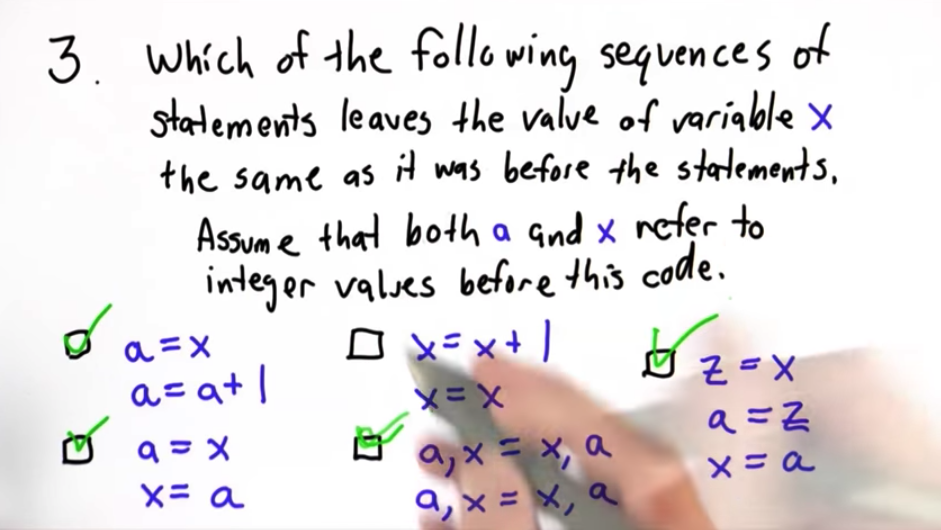 3. Which of the following sequences of
statements leaves the value of variable x
the same as it was before the statements.
Assume that both a and x refer to
integer values before this code.
a = x
a = a + 1
a = x
x = a
x = x + 1
x = x
a, x = x, a
a, x = x, a
z = x
a = z
x = a